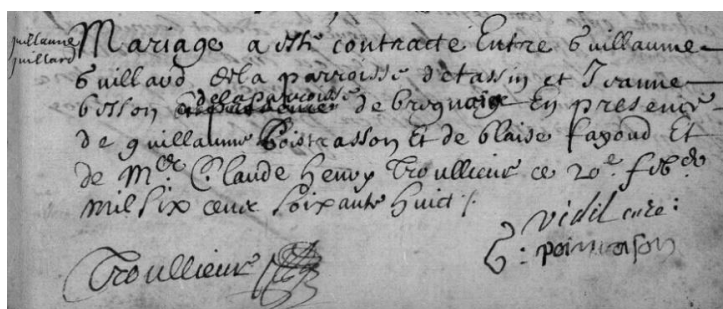 guillaume
guillard
Mariage a esté contracté Entre Guillaume
Guillard de la parroisse detassin et Jeanne
bosson de la parroisse de En presence
de guillaume Et de blaise fayoud Et
de Mre Claude Henry Troullieur ce 20e feb
Mil six cent soixante huict
Vidil curé
Troullieur
G: poinnosson